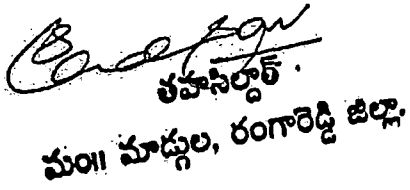 తహసిల్దార్.
మం॥ మాడ్గుల, రంగారెడ్డి జిల్లా.